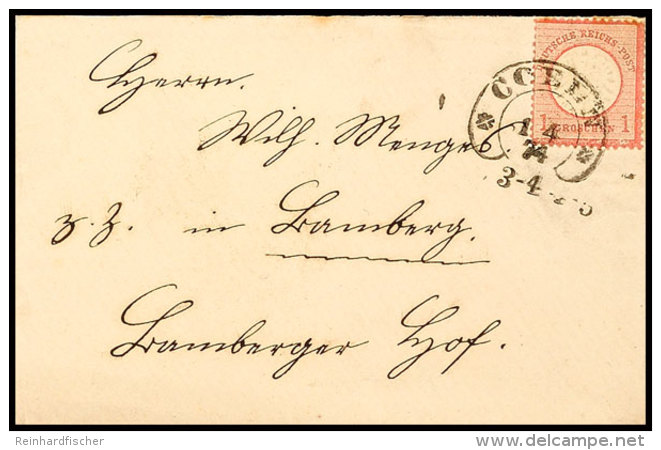 DEUTSCHE REICHS-POST
1 GROSCHEN 1
COELN
1 4
74
3-4
Herrn.
Wilh. Menges.
z. Z. in Bamberg.
Bamberger Hof.
Reinhardfischer
delcampe.net